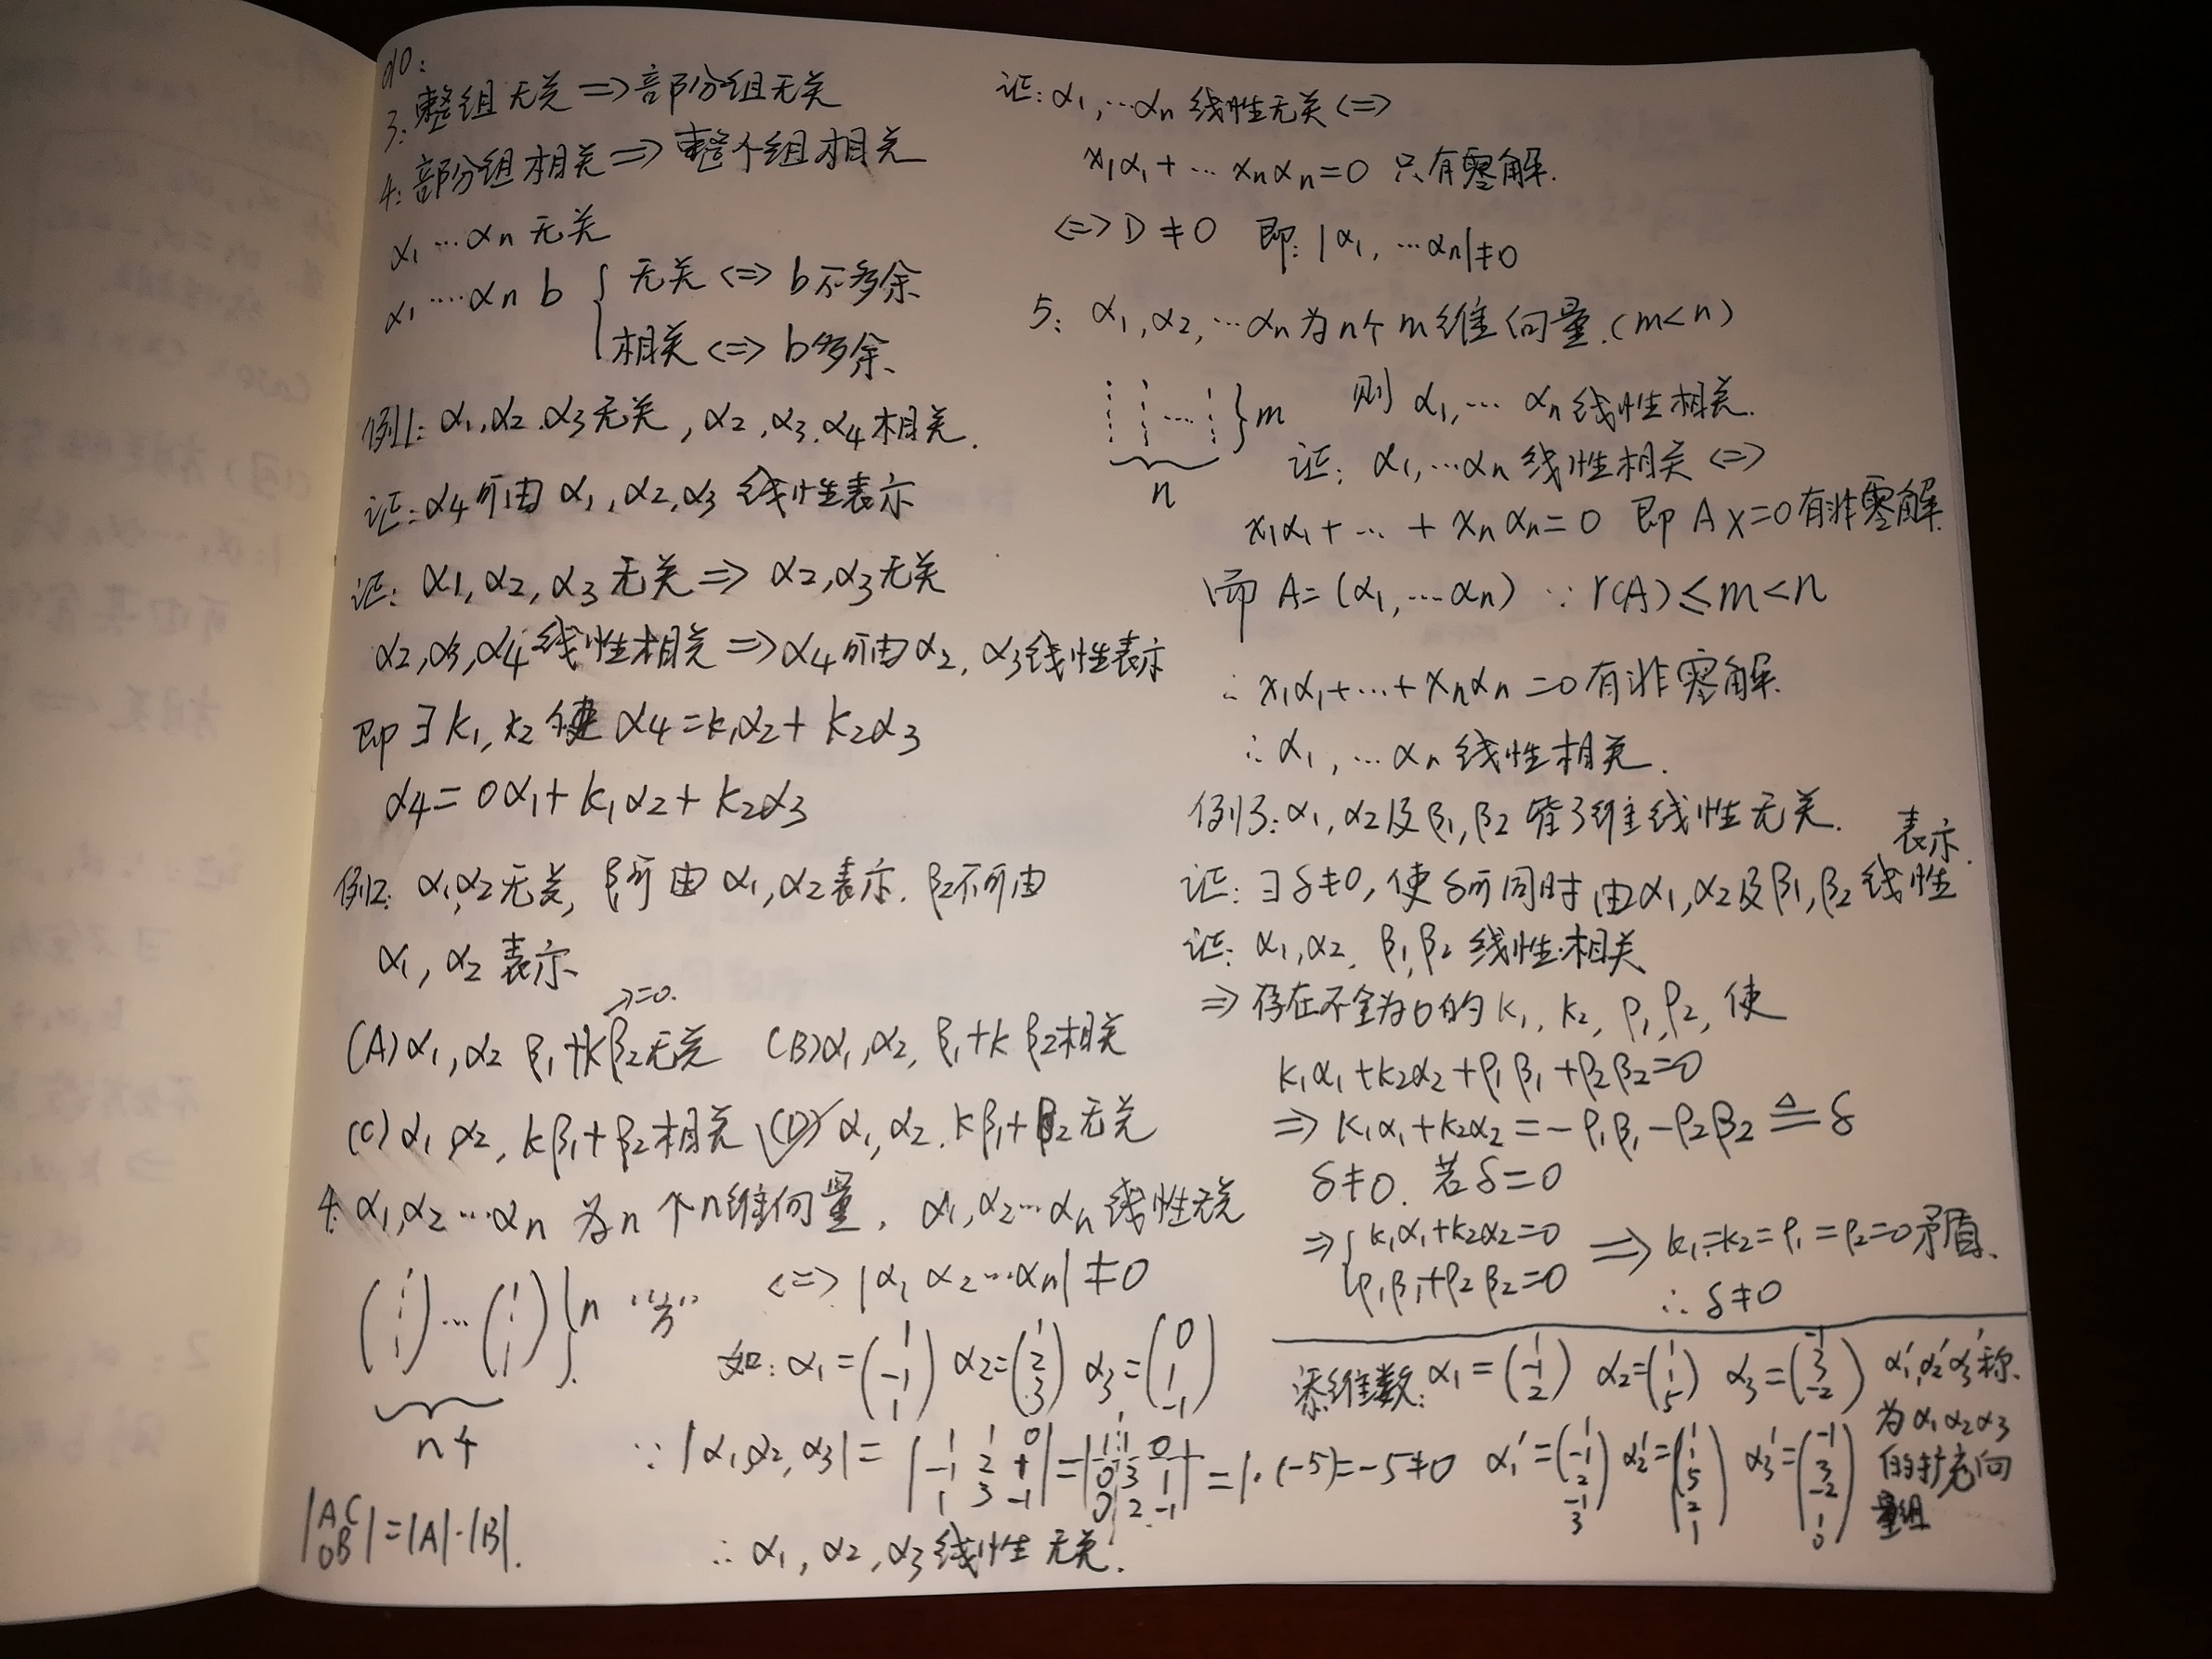 3: 整组无关 ⇒ 部分组无关
4: 部分组相关 ⇒ 整个组相关
α1 … αn 无关
α1 … αn b { 无关 ⇔ b不多余
相关 ⇔ b多余.
例1: α1, α2, α3 无关, α2, α3, α4 相关.
证: α4 可由 α1, α2, α3 线性表示
证: α1, α2, α3 无关 ⇒ α2, α3 无关
α2, α3, α4 线性相关 ⇒ α4 可由 α2, α3 线性表示
即 ∃ k1, k2 使 α4 = k1α2 + k2α3
α4 = 0α1 + k1α2 + k2α3
例2: α1, α2 无关, β1可由 α1, α2 表示. β2不可由
α1, α2 表示.
→=0.
(A) α1, α2 β1+kβ2 无关 (B) α1, α2, β1+kβ2 相关
(C) α1 α2, kβ1+β2 相关 √(D) α1, α2, kβ1+β2 无关
4: α1, α2 … αn 为 n 个 n 维向量, α1, α2 … αn 线性无关
⇔ |α1 α2 … αn| ≠ 0
( ⋮ ) … ( ⋮ ) } n "方"
n个
如: α1 = (1 -1 1) α2 = (1 2 3) α3 = (0 1 -1)
∵ |α1, α2, α3| = |1 1 0; -1 2 1; 1 3 -1| = |1 1 0; 0 3 1; 0 2 -1| = 1·(-5) = -5 ≠ 0
|A C; 0 B| = |A|·|B|.
∴ α1, α2, α3 线性无关.
证: α1, … αn 线性无关 ⇔
x1α1 + … xnαn = 0 只有零解.
⇔ D ≠ 0 即: |α1, … αn| ≠ 0
5: α1, α2, … αn 为 n个 m 维向量. (m < n)
⋮ ⋮ … ⋮ } m 则 α1, … αn 线性相关.
n
证: α1, … αn 线性相关 ⇔
x1α1 + … + xnαn = 0 即 AX=0 有非零解.
而 A = (α1, … αn) ∵ r(A) ≤ m < n
∴ x1α1 + … + xnαn = 0 有非零解.
∴ α1, … αn 线性相关.
例3: α1, α2 及 β1, β2 皆3维线性无关.
证: ∃ δ≠0, 使 δ可同时由 α1, α2 及 β1, β2 线性表示.
证: α1, α2, β1, β2 线性相关
⇒ 存在不全为0的 k1, k2, ρ1, ρ2, 使
k1α1 + k2α2 + ρ1β1 + ρ2β2 = 0
⇒ k1α1 + k2α2 = -ρ1β1 - ρ2β2 ≜ δ
δ ≠ 0. 若 δ = 0
⇒ { k1α1 + k2α2 = 0
ρ1β1 + ρ2β2 = 0 ⇒ k1 = k2 = ρ1 = ρ2 = 0 矛盾.
∴ δ ≠ 0
添维数: α1 = (1 -1 2) α2 = (1 1 5) α3 = (-1 3 -2) α1', α2' α3' 称
为 α1 α2 α3
的扩充向
量组
α1' = (1 -1 2 -1 3) α2' = (1 1 5 2 1) α3' = (-1 3 -2 1 0)